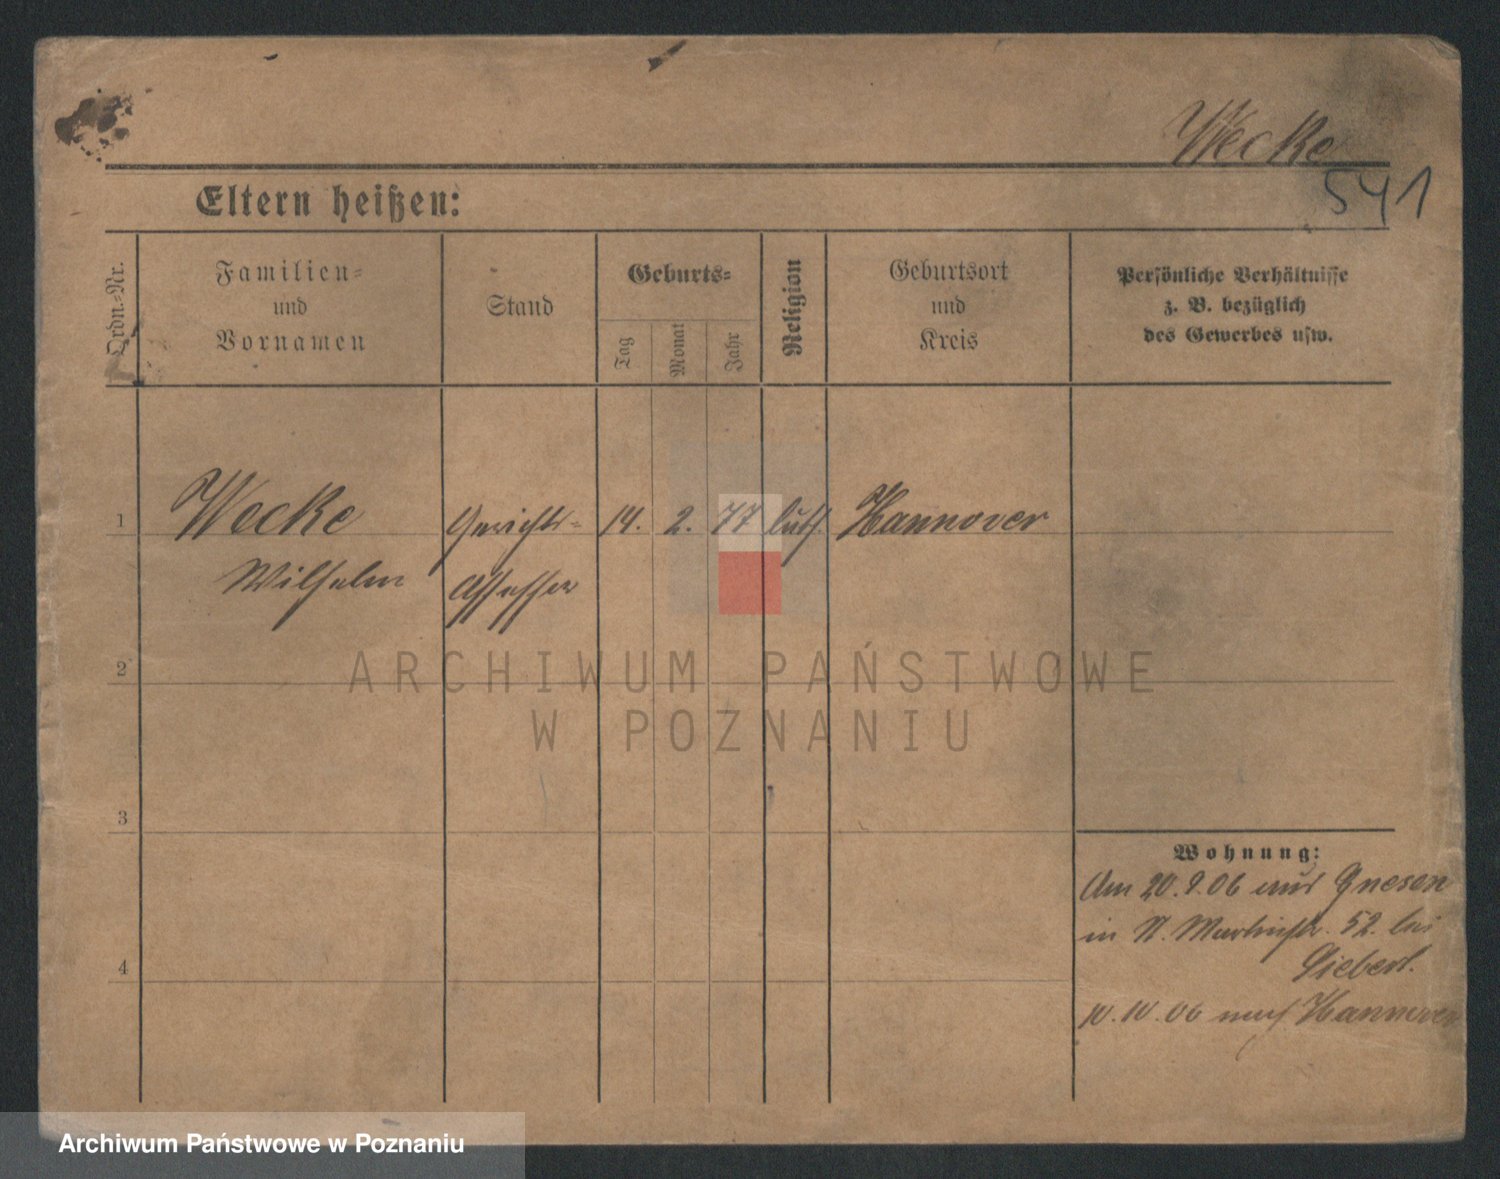 Wecke
541
Eltern heißen:
Ordn.-Nr.
Familien-
und
Vornamen
Stand
Geburts-
Tag
Monat
Jahr
Religion
Geburtsort
und
Kreis
Persönliche Verhältnisse
z. B. bezüglich
des Gewerbes usw.
1
Wecke
Gerichts-
14.
2.
77
luth.
Hannover
Wilhelm
Assessor
ARCHIWUM PAŃSTWOWE
2
W POZNANIU
3
Wohnung:
Am 20.9.06 aus Gnesen
in St. Martinstr. 52. bei
4
10.10.06 nach Hannover
Archiwum Państwowe w Poznaniu